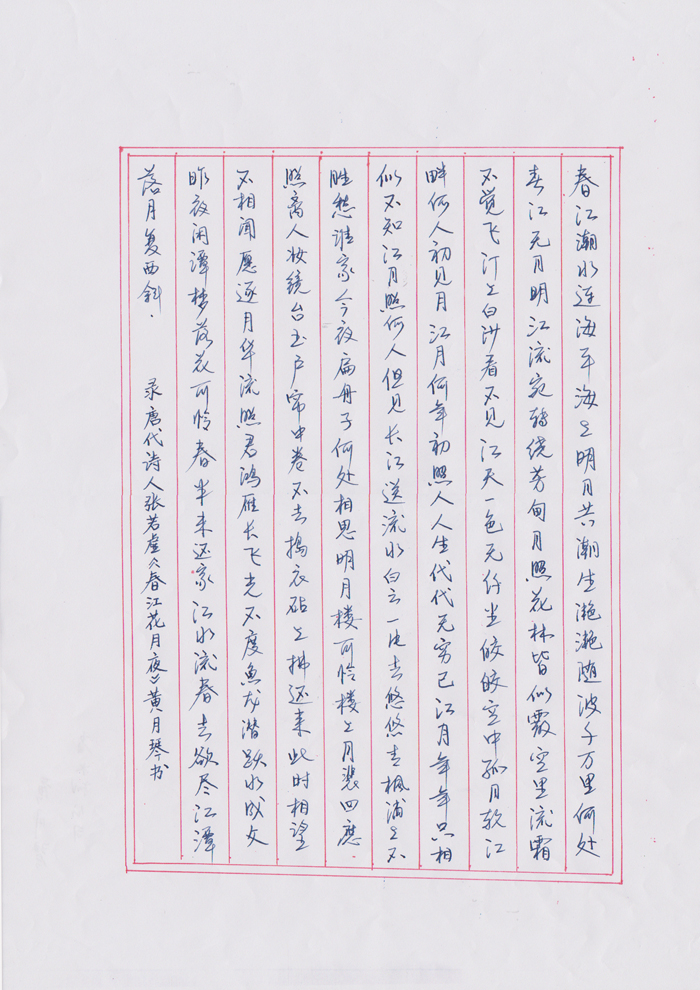 春江潮水连海平海上明月共潮生滟滟随波千万里何处
春江无月明江流宛转绕芳甸月照花林皆似霰空里流霜
不觉飞汀上白沙看不见江天一色无纤尘皎皎空中孤月轮江
畔何人初见月江月何年初照人人生代代无穷已江月年年只相
似不知江月照何人但见长江送流水白云一片去悠悠青枫浦上不
胜愁谁家今夜扁舟子何处相思明月楼可怜楼上月裴回应
照离人妆镜台玉户帘中卷不去捣衣砧上拂还来此时相望
不相闻应逐月华流照君鸿雁长飞光不度鱼龙潜跃水成文
昨夜闲潭梦落花可怜春半未还家江水流春去欲尽江潭
落月复西斜.
录唐代诗人张若虚《春江花月夜》黄月琴书